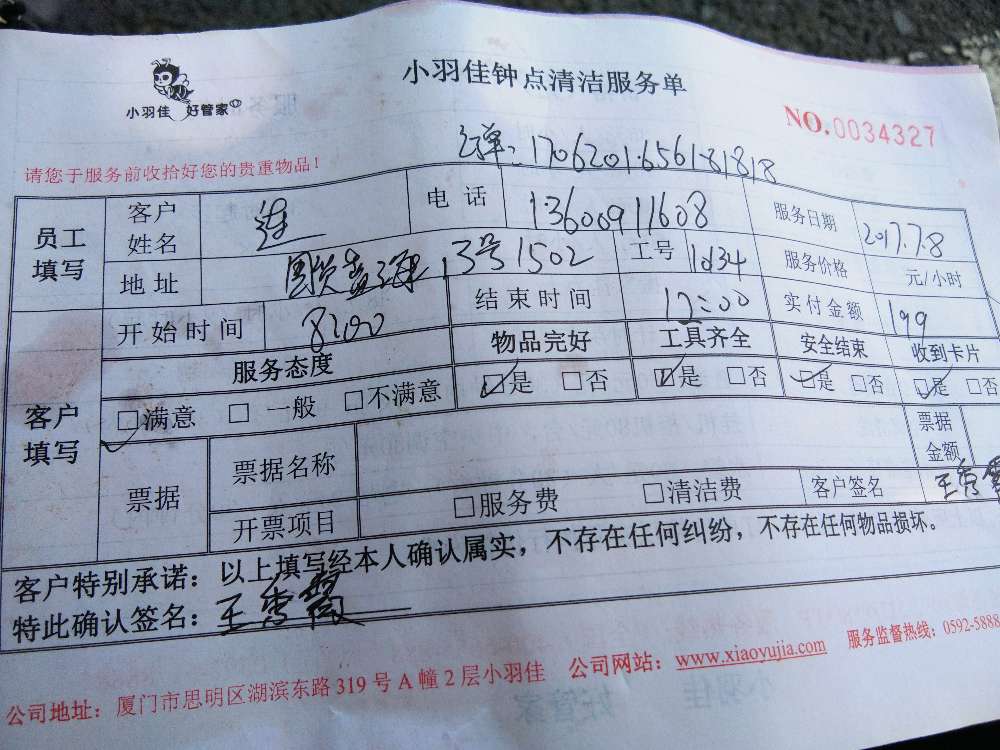 小羽佳 好管家
小羽佳钟点清洁服务单
NO.0034327
请您于服务前收拾好您的贵重物品！
1706201656181818
员工填写 客户姓名 连 电话 13600911608 服务日期 2017.7.8
地址 13号1502 工号 1034 服务价格 元/小时
开始时间 8:00 结束时间 12:00 实付金额 199
客户填写 服务态度 物品完好 工具齐全 安全结束 收到卡片
☑满意 □一般 □不满意 ☑是 □否 ☑是 □否 ☑是 □否 ☑是 □否
票据 票据名称 票据金额
开票项目 □服务费 □清洁费 客户签名 王秀霞
客户特别承诺：以上填写经本人确认属实，不存在任何纠纷，不存在任何物品损坏。
特此确认签名：王秀霞
公司地址：厦门市思明区湖滨东路319号A幢2层小羽佳 公司网站：www.xiaoyujia.com 服务监督热线：0592-5888